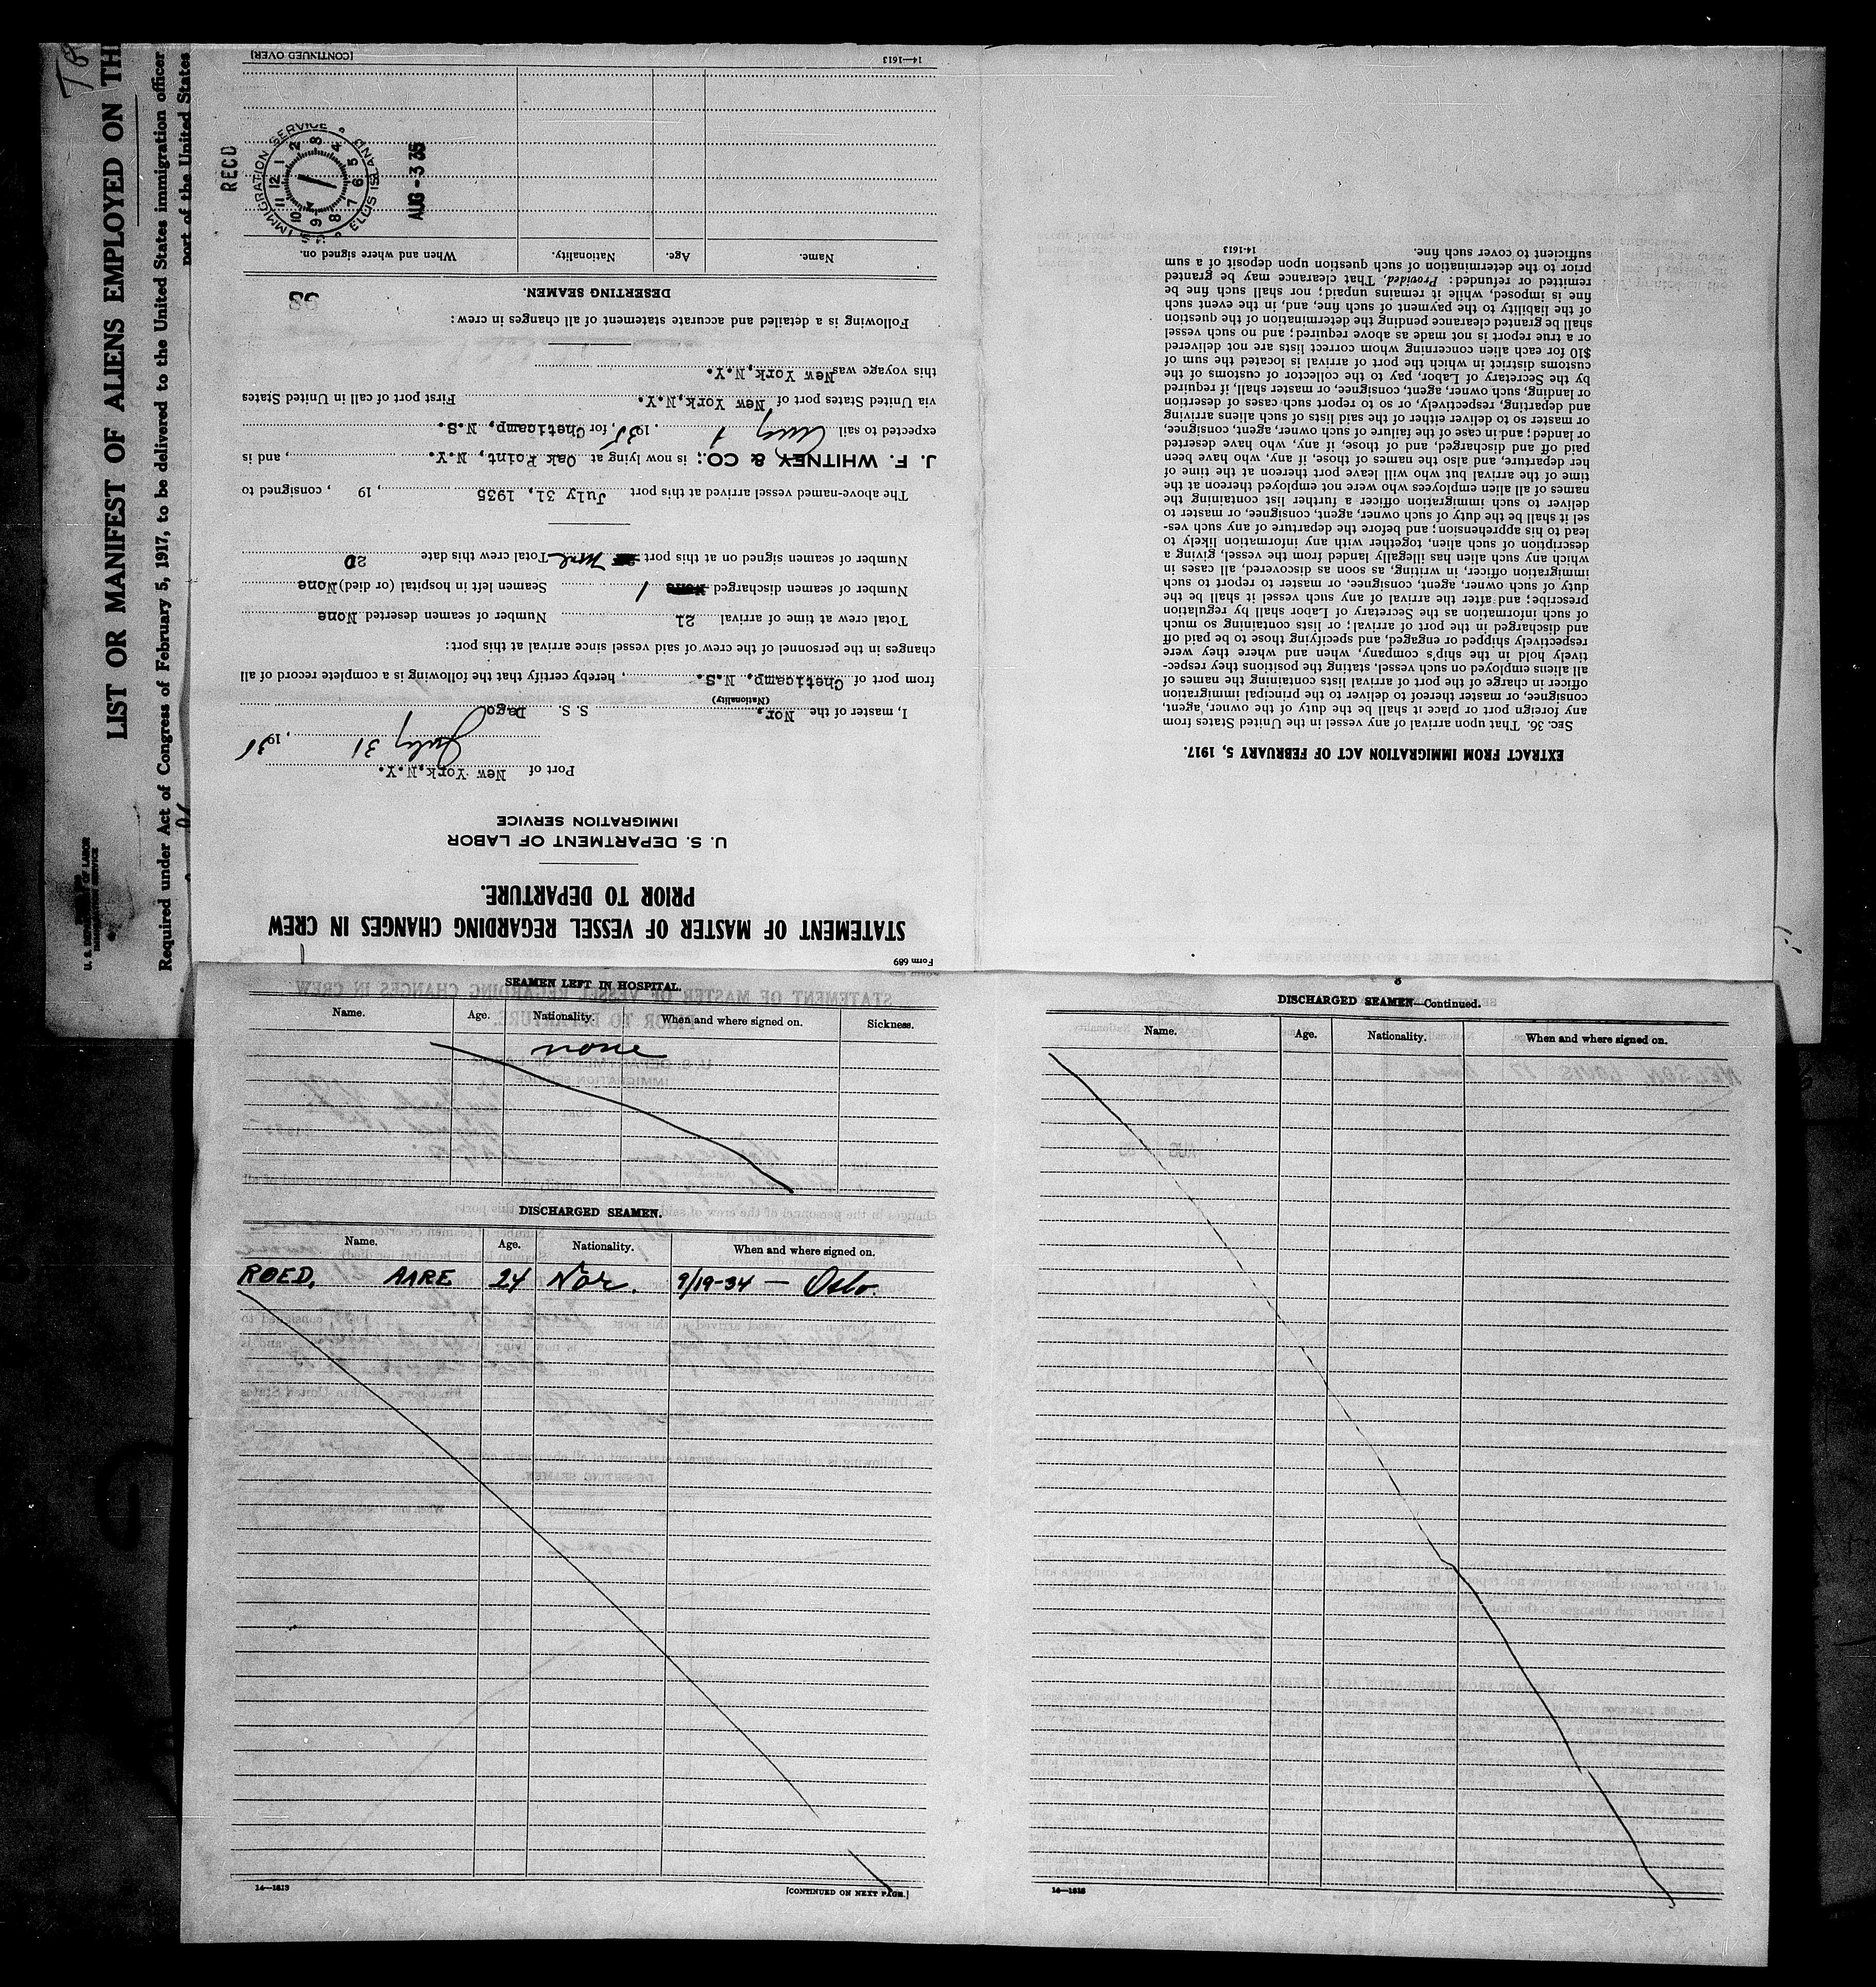 T8
LIST OR MANIFEST OF ALIENS EMPLOYED ON TH
Required under Act of Congress of February 5, 1917, to be delivered to the United States immigration officer
port of the United States
U. S. DEPARTMENT OF LABOR
IMMIGRATION SERVICE
Form 689
STATEMENT OF MASTER OF VESSEL REGARDING CHANGES IN CREW
PRIOR TO DEPARTURE.
U. S. DEPARTMENT OF LABOR
IMMIGRATION SERVICE
Port of New York,N.Y.
July 31, 1935
I, master of the Nor. S. S. Dago
(Nationality)
from port of Cheticamp, N.S., hereby certify that the following is a complete record of all
changes in the personnel of the crew of said vessel since arrival at this port:
Total crew at time of arrival 21 Number of seamen deserted None
Number of seamen discharged None 1 Seamen left in hospital (or died) None
Number of seamen signed on at this port None Total crew this date 20
The above-named vessel arrived at this port July 31, 1935, 19 , consigned to
J. F. WHITNEY & CO.; is now lying at Oak Point, N.Y., and is
expected to sail Aug 1, 1935, for Cheticamp, N.S.
via United States port of New York,N.Y. First port of call in United States
this voyage was New York,N.Y.
Following is a detailed and accurate statement of all changes in crew:
93
DESERTING SEAMEN.
Name. Age. Nationality. When and where signed on.
RECD
IMMIGRATION SERVICE ELLIS ISLAND
1 2 3 4 5 6 7 8 9 10 11 12
AUG -3 35
14—1613 [CONTINUED OVER]
EXTRACT FROM IMMIGRATION ACT OF FEBRUARY 5, 1917.
SEC. 36. That upon arrival of any vessel in the United States from
any foreign port or place it shall be the duty of the owner, agent,
consignee, or master thereof to deliver to the principal immigration
officer in charge of the port of arrival lists containing the names of
all aliens employed on such vessel, stating the positions they respec-
tively hold in the ship's company, when and where they were
respectively shipped or engaged, and specifying those to be paid off
and discharged in the port of arrival; or lists containing so much
of such information as the Secretary of Labor shall by regulation
prescribe; and after the arrival of any such vessel it shall be the
duty of such owner, agent, consignee, or master to report to such
immigration officer, in writing, as soon as discovered, all cases in
which any such alien has illegally landed from the vessel, giving a
description of such alien, together with any information likely to
lead to his apprehension; and before the departure of any such ves-
sel it shall be the duty of such owner, agent, consignee, or master to
deliver to such immigration officer a further list containing the
names of all alien employees who were not employed thereon at the
time of the arrival but who will leave port thereon at the time of
her departure, and also the names of those, if any, who have been
paid off and discharged, and of those, if any, who have deserted
or landed; and in case of the failure of such owner, agent, consignee,
or master so to deliver either of the said lists of such aliens arriving
and departing, respectively, or so to report such cases of desertion
or landing, such owner, agent, consignee, or master shall, if required
by the Secretary of Labor, pay to the collector of customs of the
customs district in which the port of arrival is located the sum of
$10 for each alien concerning whom correct lists are not delivered
or a true report is not made as above required; and no such vessel
shall be granted clearance pending the determination of the question
of the liability to the payment of such fine, and, in the event such
fine is imposed, while it remains unpaid; nor shall such fine be
remitted or refunded: Provided, That clearance may be granted
prior to the determination of such question upon deposit of a sum
sufficient to cover such fine.
14-1613
SEAMEN LEFT IN HOSPITAL.
Name. Age. Nationality. When and where signed on. Sickness.
none
DISCHARGED SEAMEN.
Name. Age. Nationality. When and where signed on.
ROED, AARE 24 Nor. 9/19-34 — Oslo.
14—1613 [CONTINUED ON NEXT PAGE.]
DISCHARGED SEAMEN—Continued.
Name. Age. Nationality. When and where signed on.
14—1613